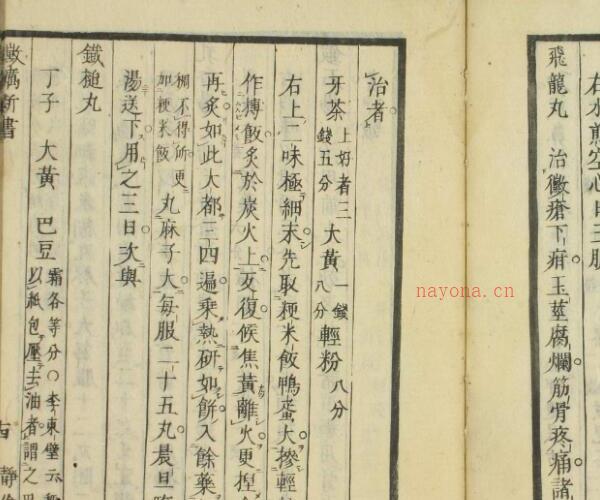 右水煎空心日三服
飛龍丸 治黴瘡下疳玉莖腐爛筋骨疼痛諸
治者
牙茶上好者三錢五分 大黃一錢八分 輕粉八分
右上二味極細末先取粳米飯鴨蛋大摻輕
作摶飯炙於炭火上反復候焦黃離火更捏
再炙如此大都三四遍乘熱研如餅入餘藥
稠不得所更加粳米飯 丸麻子大每服二十五丸晨旦
湯送下用之三日次與
鐵槌丸
丁子 大黃 巴豆霜各等分○李東璧云
以紙包壓去油者謂之
黴癘新書
nayona.cn